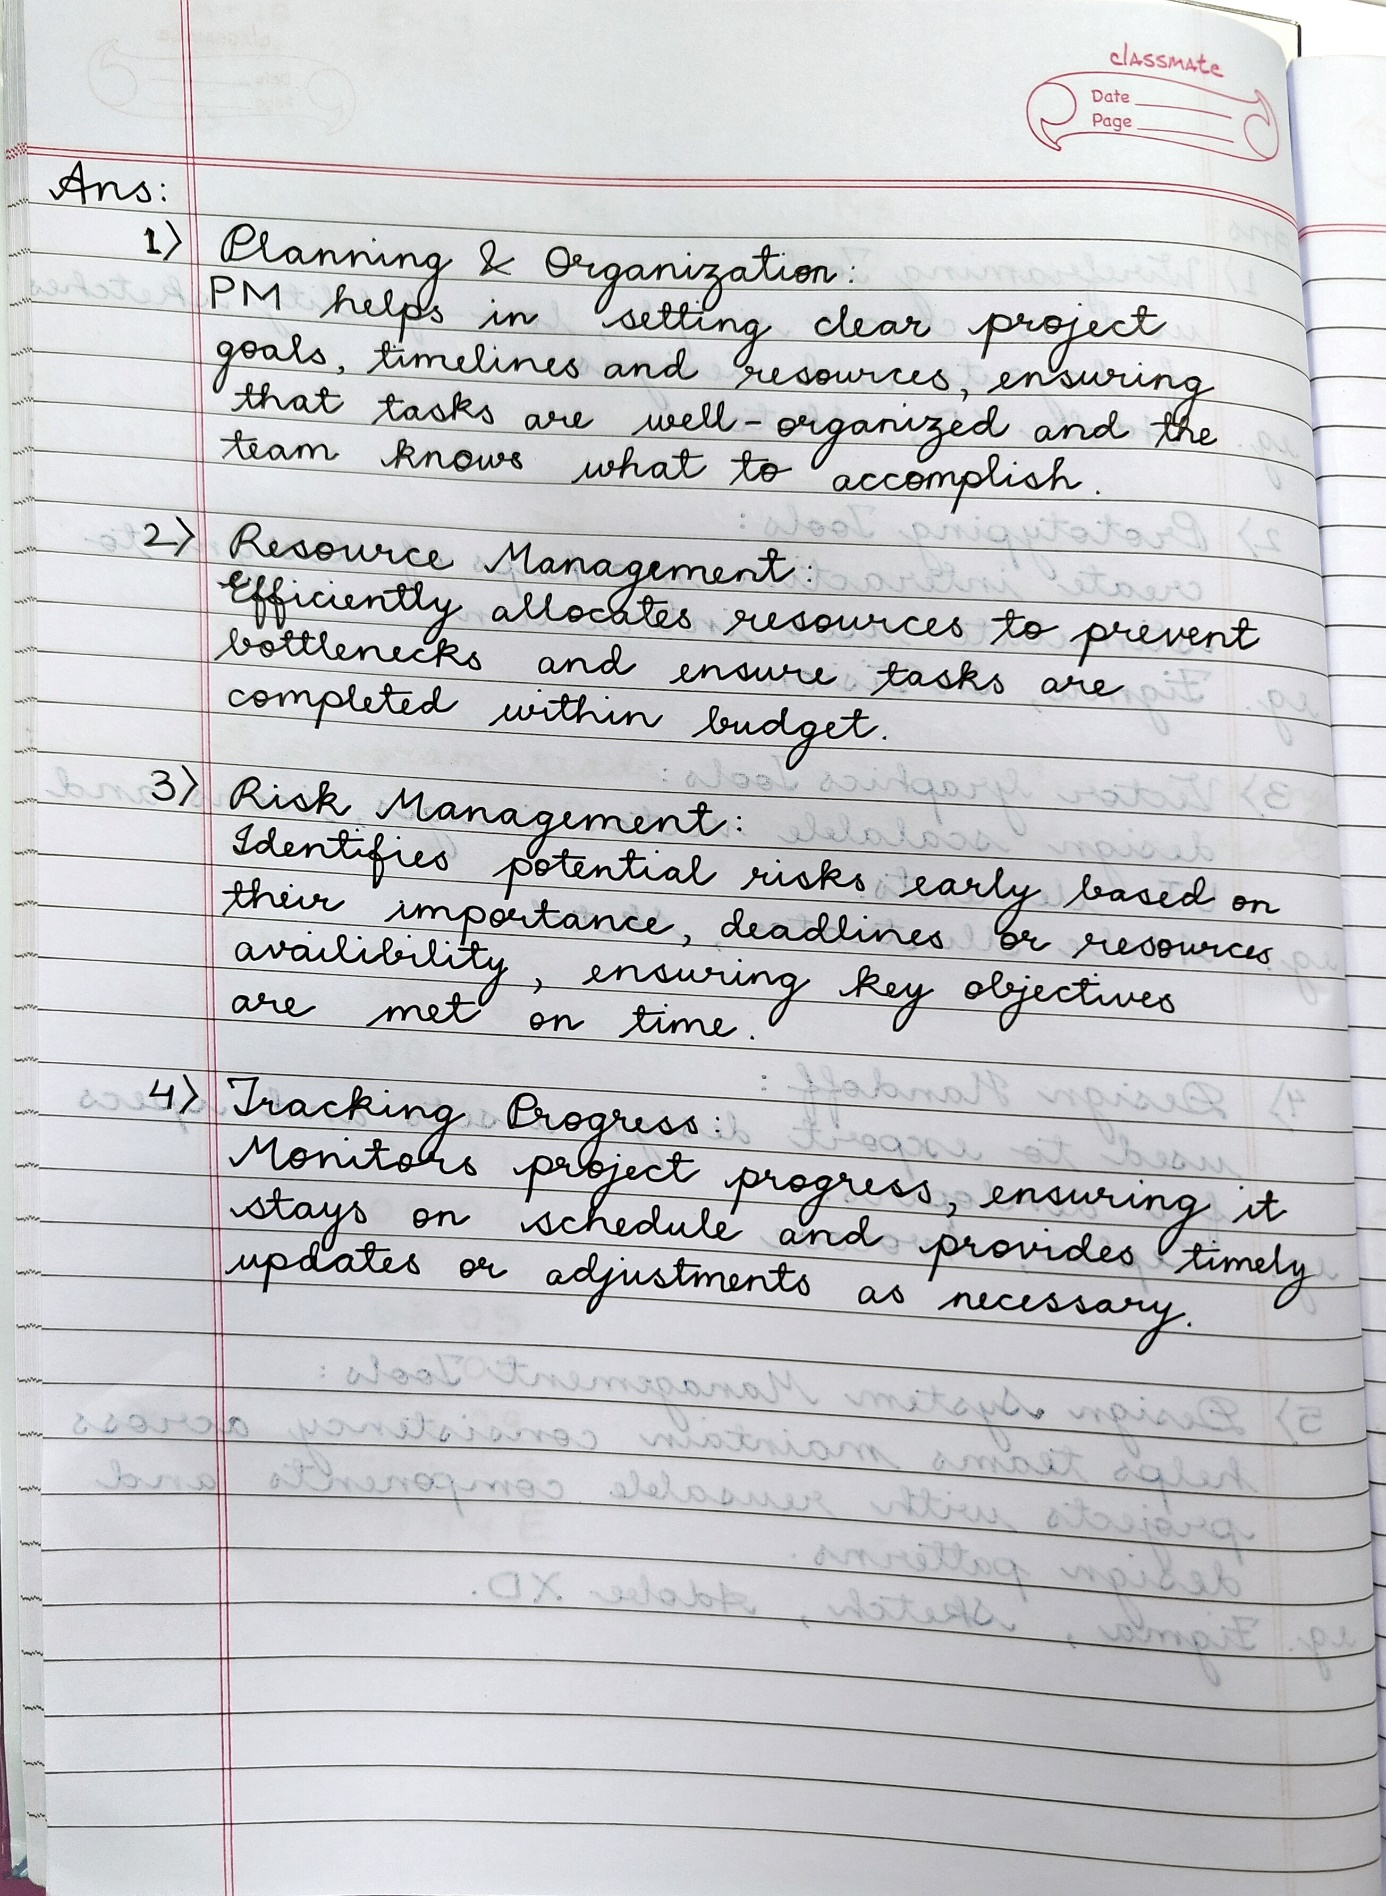 classmate
Date
Page
Ans:
1) Planning & Organization:
PM helps in setting clear project
goals, timelines and resources, ensuring
that tasks are well-organized and the
team knows what to accomplish.
2) Resource Management:
Efficiently allocates resources to prevent
bottlenecks and ensure tasks are
completed within budget.
3) Risk Management:
Identifies potential risks early based on
their importance, deadlines or resources
availibility, ensuring key objectives
are met on time.
4) Tracking Progress:
Monitors project progress, ensuring it
stays on schedule and provides timely
updates or adjustments as necessary.